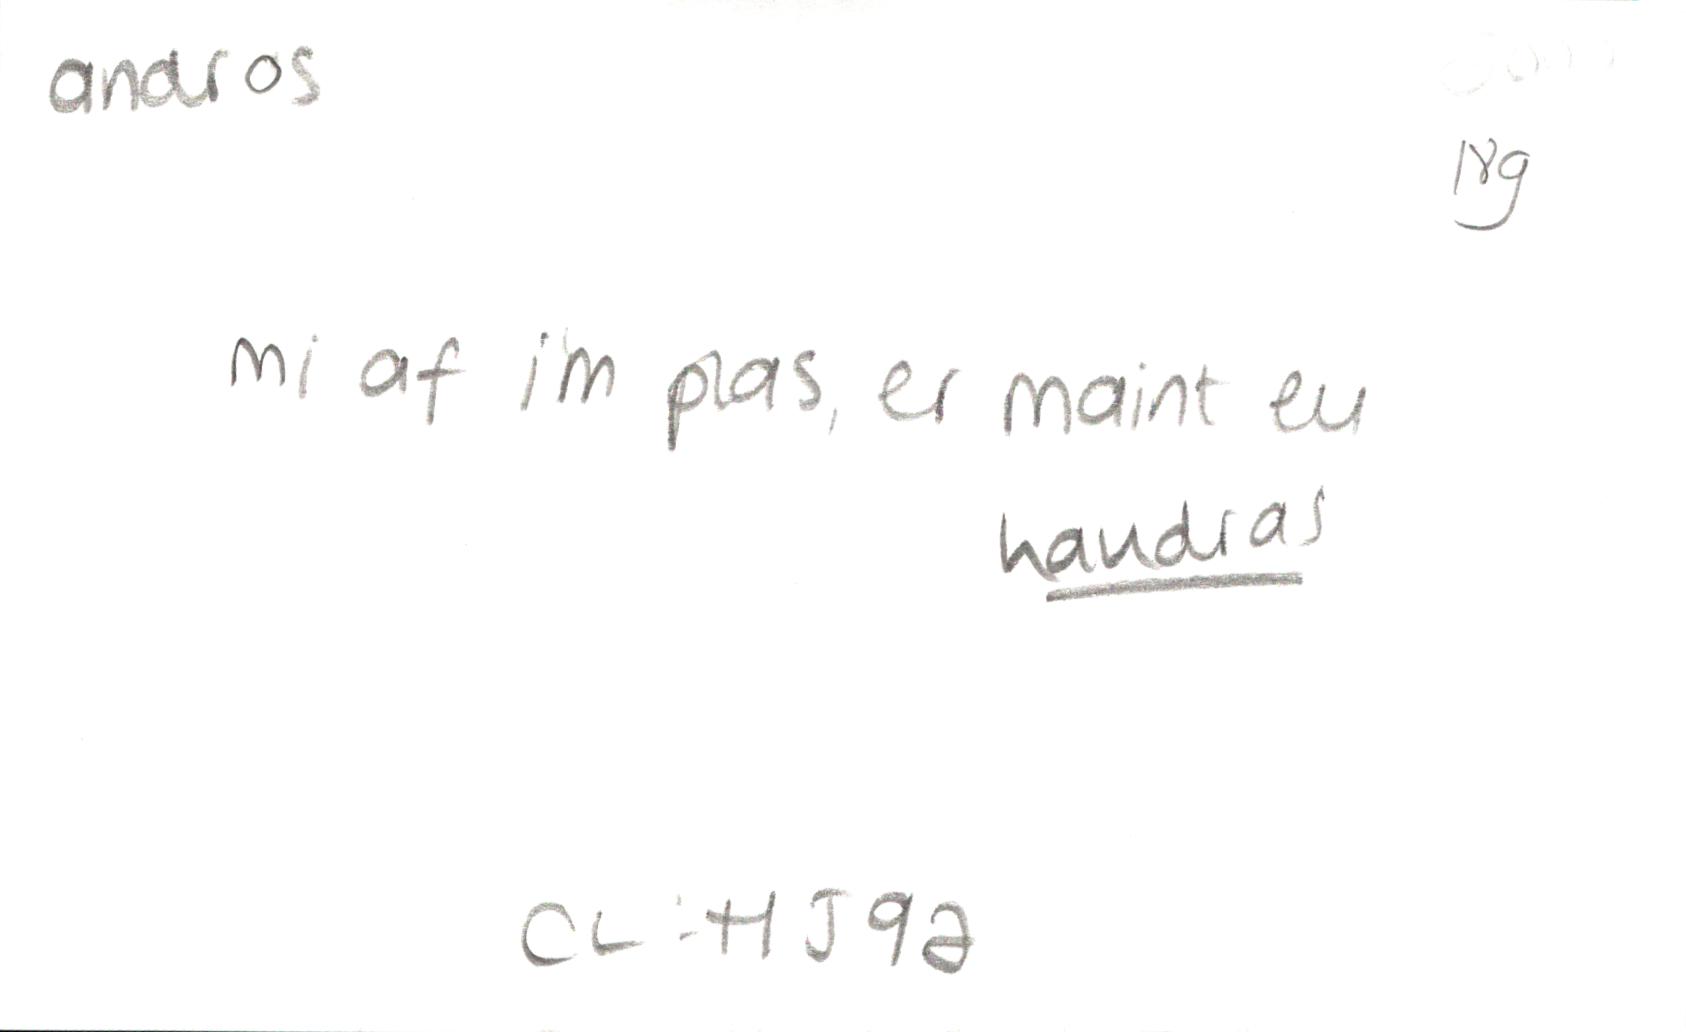 andros
18g
mi af i'm plas, er maint eu
haudras
CL:HJ92